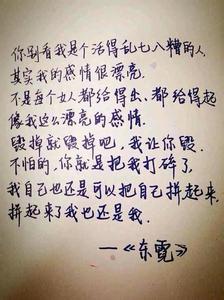 你别看我是个活得乱七八糟的人,
其实我的感情很漂亮.
不是每个女人都给得出、都给得起
像我这么漂亮的感情.
毁掉就毁掉吧,我让你毁.
不怕的,你就是把我打碎了,
我自己也还是可以把自己拼起来,
拼起来了我也还是我.
——《东霓》